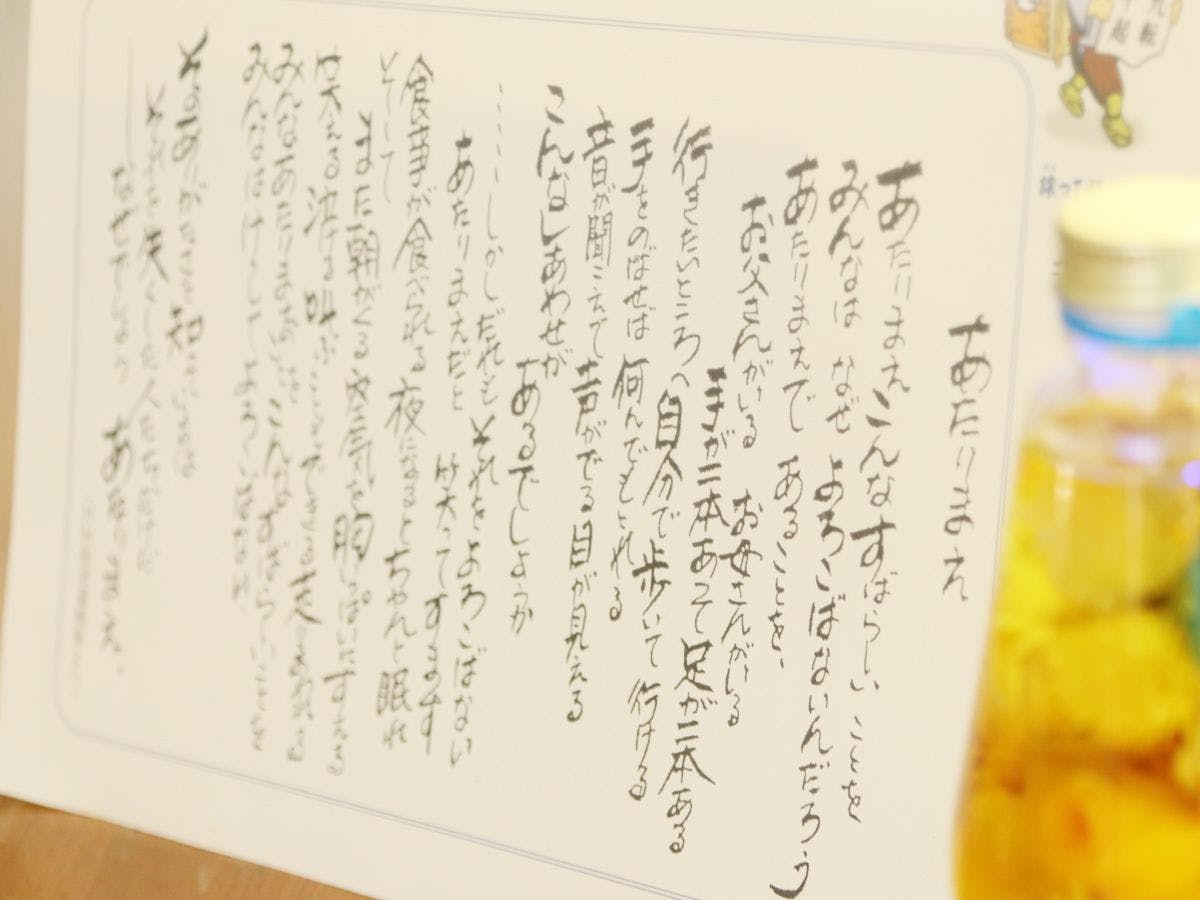 九転
十起
あたりまえ
あたりまえこんなすばらしいことを
みんなは なぜ よろこばないんだろう
あたりまえで あることを、
お父さんがいる お母さんがいる
手が二本あって足が二本ある
行きたいところへ自分で歩いて行ける
手をのばせば 何んでもとれる
音が聞こえて声がでる目が見える
こんなしあわせが
あるでしょうか
……しかしだれもそれをよろこばない
あたりまえだと 笑ってすます
食事が食べられる 夜になるとちゃんと眠れ
そして
また朝がくる 空気を胸いっぱいにすえる
笑える 泣ける 叫ぶこともできる走りまわれる
みんなあたりまえのこと こんなすばらしいことを
みんなはけしてよろこばない
そのありがたさを知っているのは
それを失くした人たちだけだ
――なぜでしょう あたりまえ、